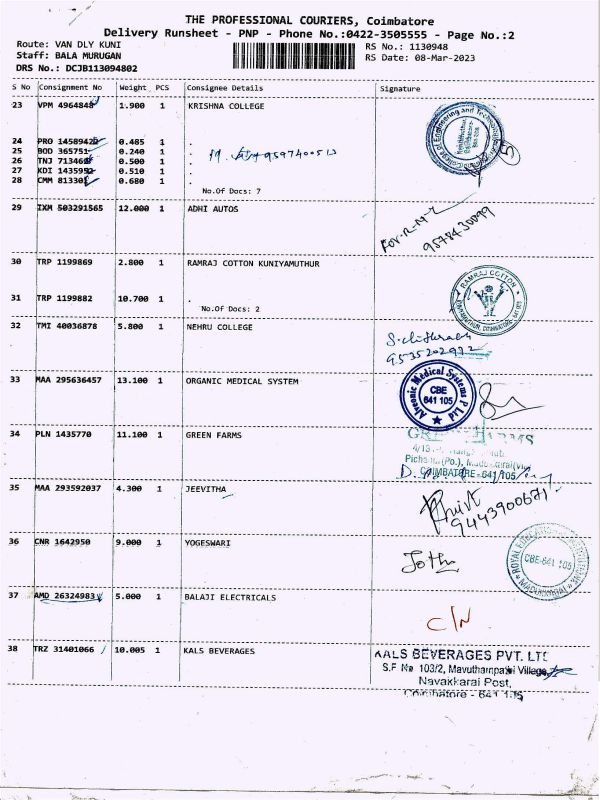 THE PROFESSIONAL COURIERS, Coimbatore
Delivery Runsheet - PNP - Phone No.:0422-3505555 - Page No.:2
Route: VAN DLY KUNI
RS No.: 1130948
Staff: BALA MURUGAN
RS Date: 08-Mar-2023
DRS No.: DCJB113094802
S No Consignment No Weight PCS Consignee Details Signature
23 VPM 4964848 1.900 1 KRISHNA COLLEGE
24 PRO 1458942 0.485 1 .
25 BOD 365751 0.240 1 .
9597400513
26 TNJ 713468 0.500 1 .
27 KDI 1435952 0.510 1 .
28 CMM 81330 0.680 1 .
No.Of Docs: 7
29 IXM 503291565 12.000 1 ADHI AUTOS
For-R-M-
9578430099
30 TRP 1199869 2.800 1 RAMRAJ COTTON KUNIYAMUTHUR
RAMRAJ COTTON
31 TRP 1199882 10.700 1 .
No.Of Docs: 2
32 TMI 40036878 5.800 1 NEHRU COLLEGE
9535202932
33 MAA 295636457 13.100 1 ORGANIC MEDICAL SYSTEM
Medical Systems P Ltd
CBE
641 105
34 PLN 1435770 11.100 1 GREEN FARMS
COIMBATORE-641 105
35 MAA 293592037 4.300 1 JEEVITHA
9443900671
36 CNR 1642950 9.000 1 YOGESWARI
Jothi
CBE-641 105
37 AMD 26324983 5.000 1 BALAJI ELECTRICALS
C/N
38 TRZ 31401066 10.005 1 KALS BEVERAGES
KALS BEVERAGES PVT. LTD
S.F No 103/2, Mavuthampathi Village,
Navakkarai Post,
Coimbatore - 641 105